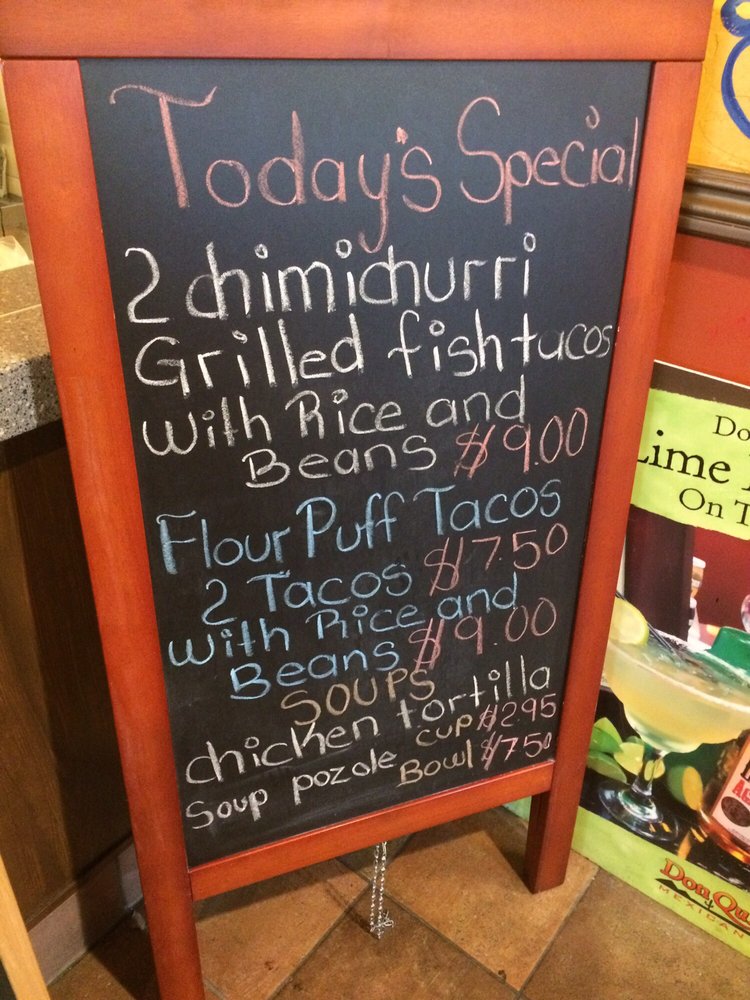 Today's Special
2 chimichurri
Grilled fish tacos
With Rice and
Beans $9.00
Flour Puff Tacos
2 Tacos $7.50
With Rice and
Beans $9.00
SOUPS
chicken tortilla
Soup pozole cup $2.95
Bowl $7.50
Lime
On